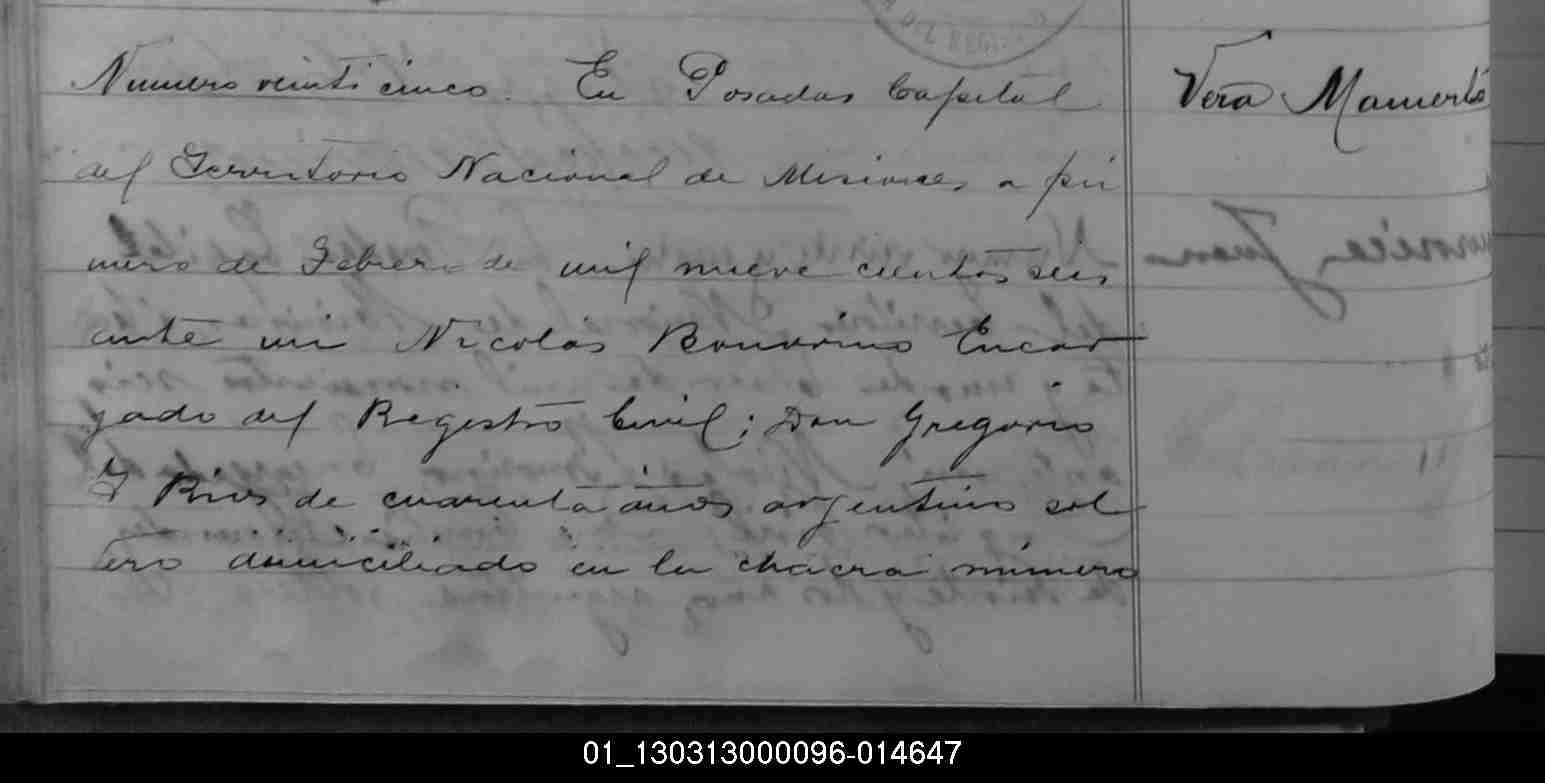 Numero veinticinco. En Posadas Capital
del Territorio Nacional de Misiones a pri
mero de Febrero de mil nueve cientos seis
ante mi Nicolás Bonorino Encar
gado del Registro Civil; Don Gregorio
Rios de cuarenta años argentino sol
tero domiciliado en la chacra número
Vera Mamerto
01_130313000096-014647